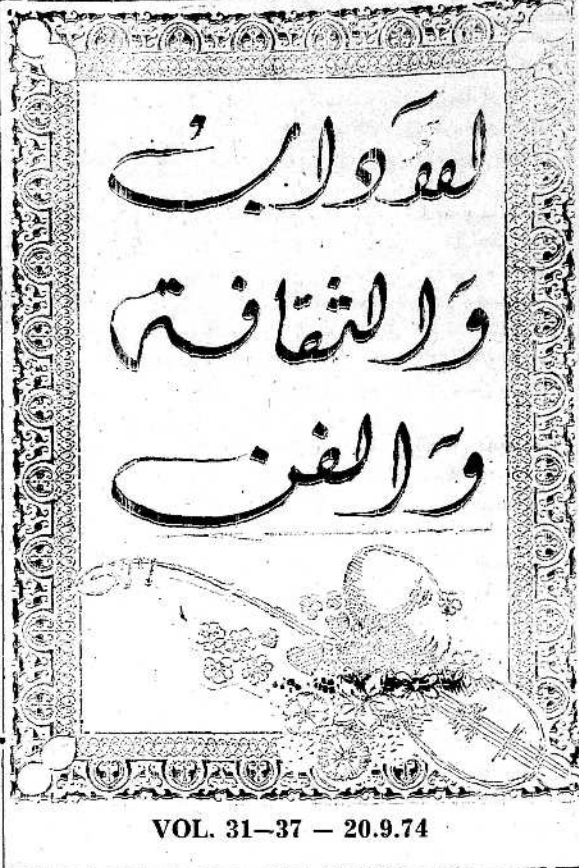 وَالثقافة
وَالفن
VOL. 31–37 – 20.9.74